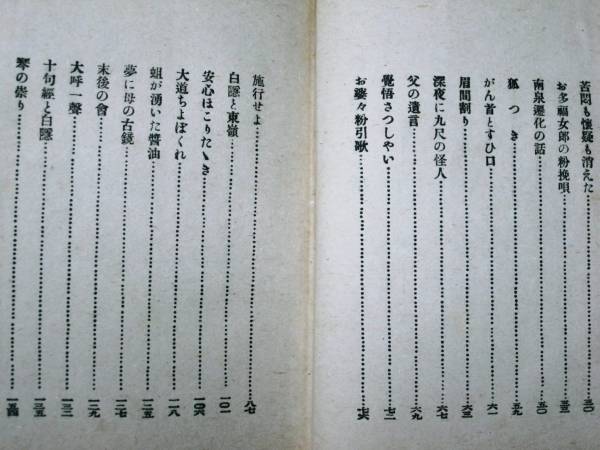 苦悶も懷疑も消えた……三〇
お多福女郎の粉挽唄……三三
南泉遷化の話……五〇
狐つき……五九
がん首とすひ口……六一
眉間割り……六三
深夜に九尺の怪人……六七
父の遺言……六九
覺悟さつしやい……七二
お婆々粉引歌……七六
施行せよ……八七
白隱と東嶺……一〇一
安心ほこりたゝき……一〇六
大道ちよぼくれ……一一八
蛆が湧いた醬油……一二五
夢に母の古鏡……一二七
末後の會……一二九
大呼一聲……一三一
十句經と白隱……一三五
琴の祟り……一五四